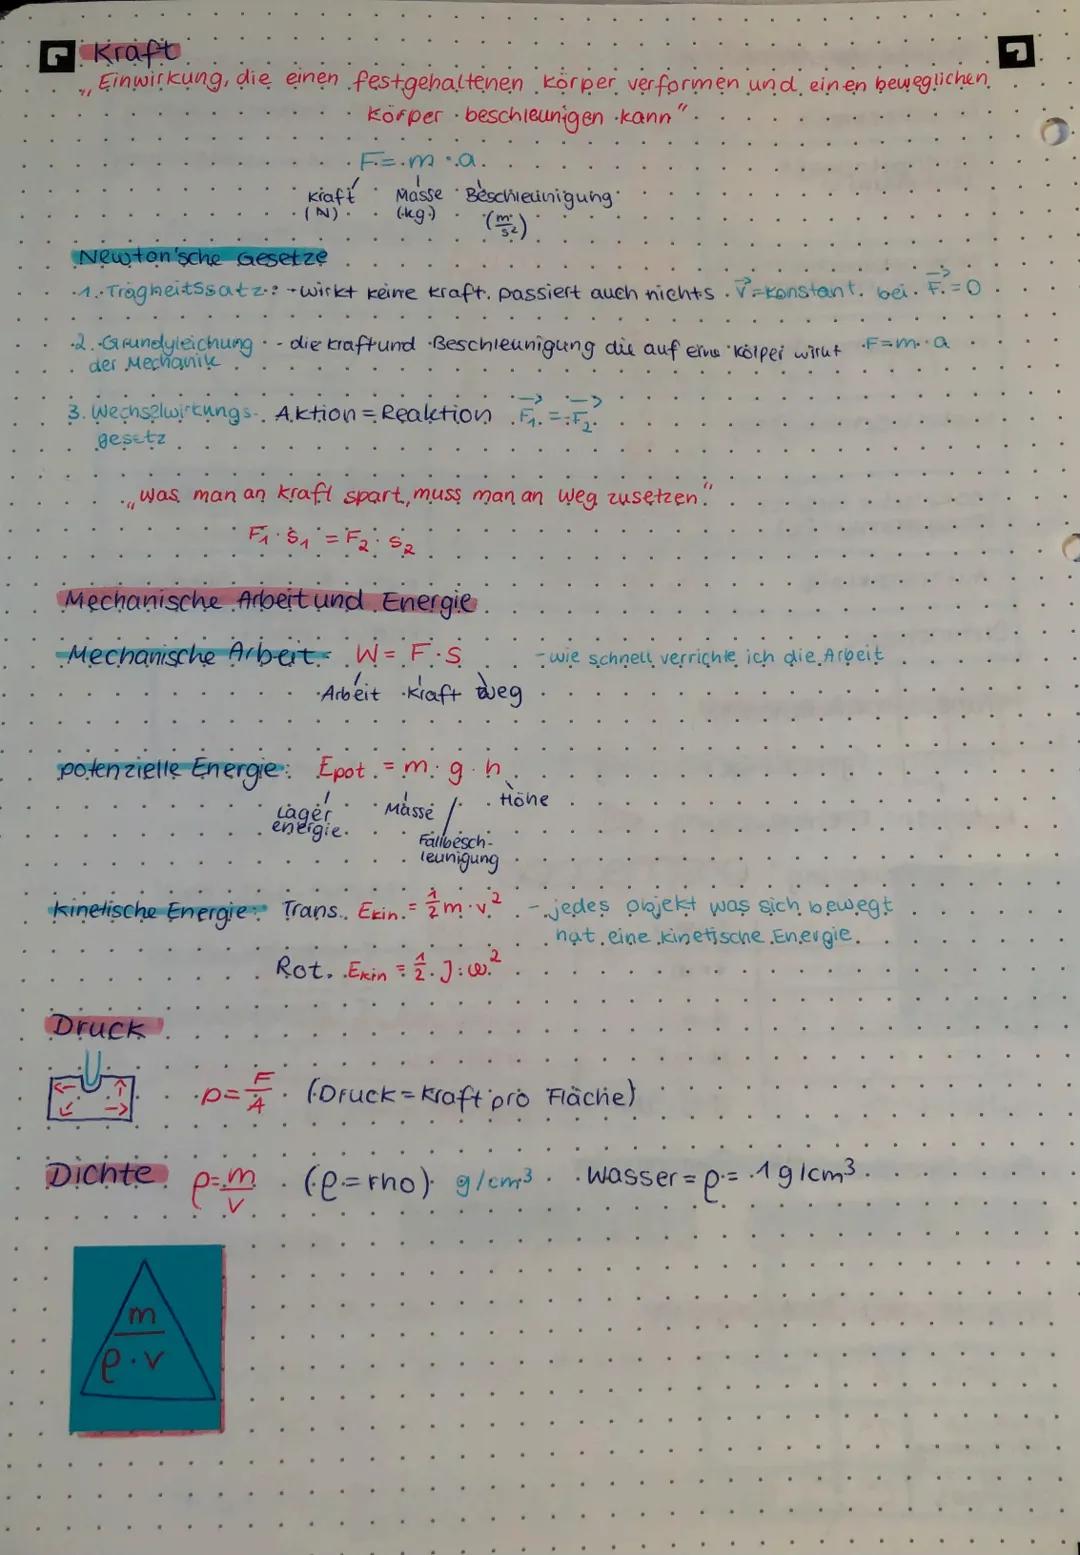 Kraft
„Einwirkung, die einen festgehaltenen Körper verformen und einen beweglichen
Körper beschleunigen kann"
F = m · a
Kraft Masse Beschleunigung
(N) (kg) (m/s²)
Newton'sche Gesetze
1. Trägheitssatz: - wirkt keine Kraft, passiert auch nichts v⃗ = konstant. bei F⃗ = 0
2. Grundgleichung - die Kraft und Beschleunigung die auf eine Kölper wirkt F = m · a
der Mechanik
3. Wechselwirkungs- Aktion = Reaktion F⃗₁ = -F⃗₂
gesetz
„Was man an Kraft spart, muss man an Weg zusetzen."
F₁ · s₁ = F₂ · s₂
Mechanische Arbeit und Energie
Mechanische Arbeit: W = F · s - wie schnell verrichte ich die Arbeit
Arbeit Kraft Weg
potenzielle Energie: Epot. = m · g · h
Lager Masse Höhe
energie
Fallbesch-
leunigung
kinetische Energie: Trans. Ekin. = 1/2 m · v² - jedes Objekt was sich bewegt
hat eine kinetische Energie.
Rot. Ekin = 1/2 · J · ω²
Druck
p = F/A (Druck = Kraft pro Fläche)
Dichte ρ = m/v (ρ = rho) g/cm³ Wasser = ρ = 1 g/cm³
m
ρ · v